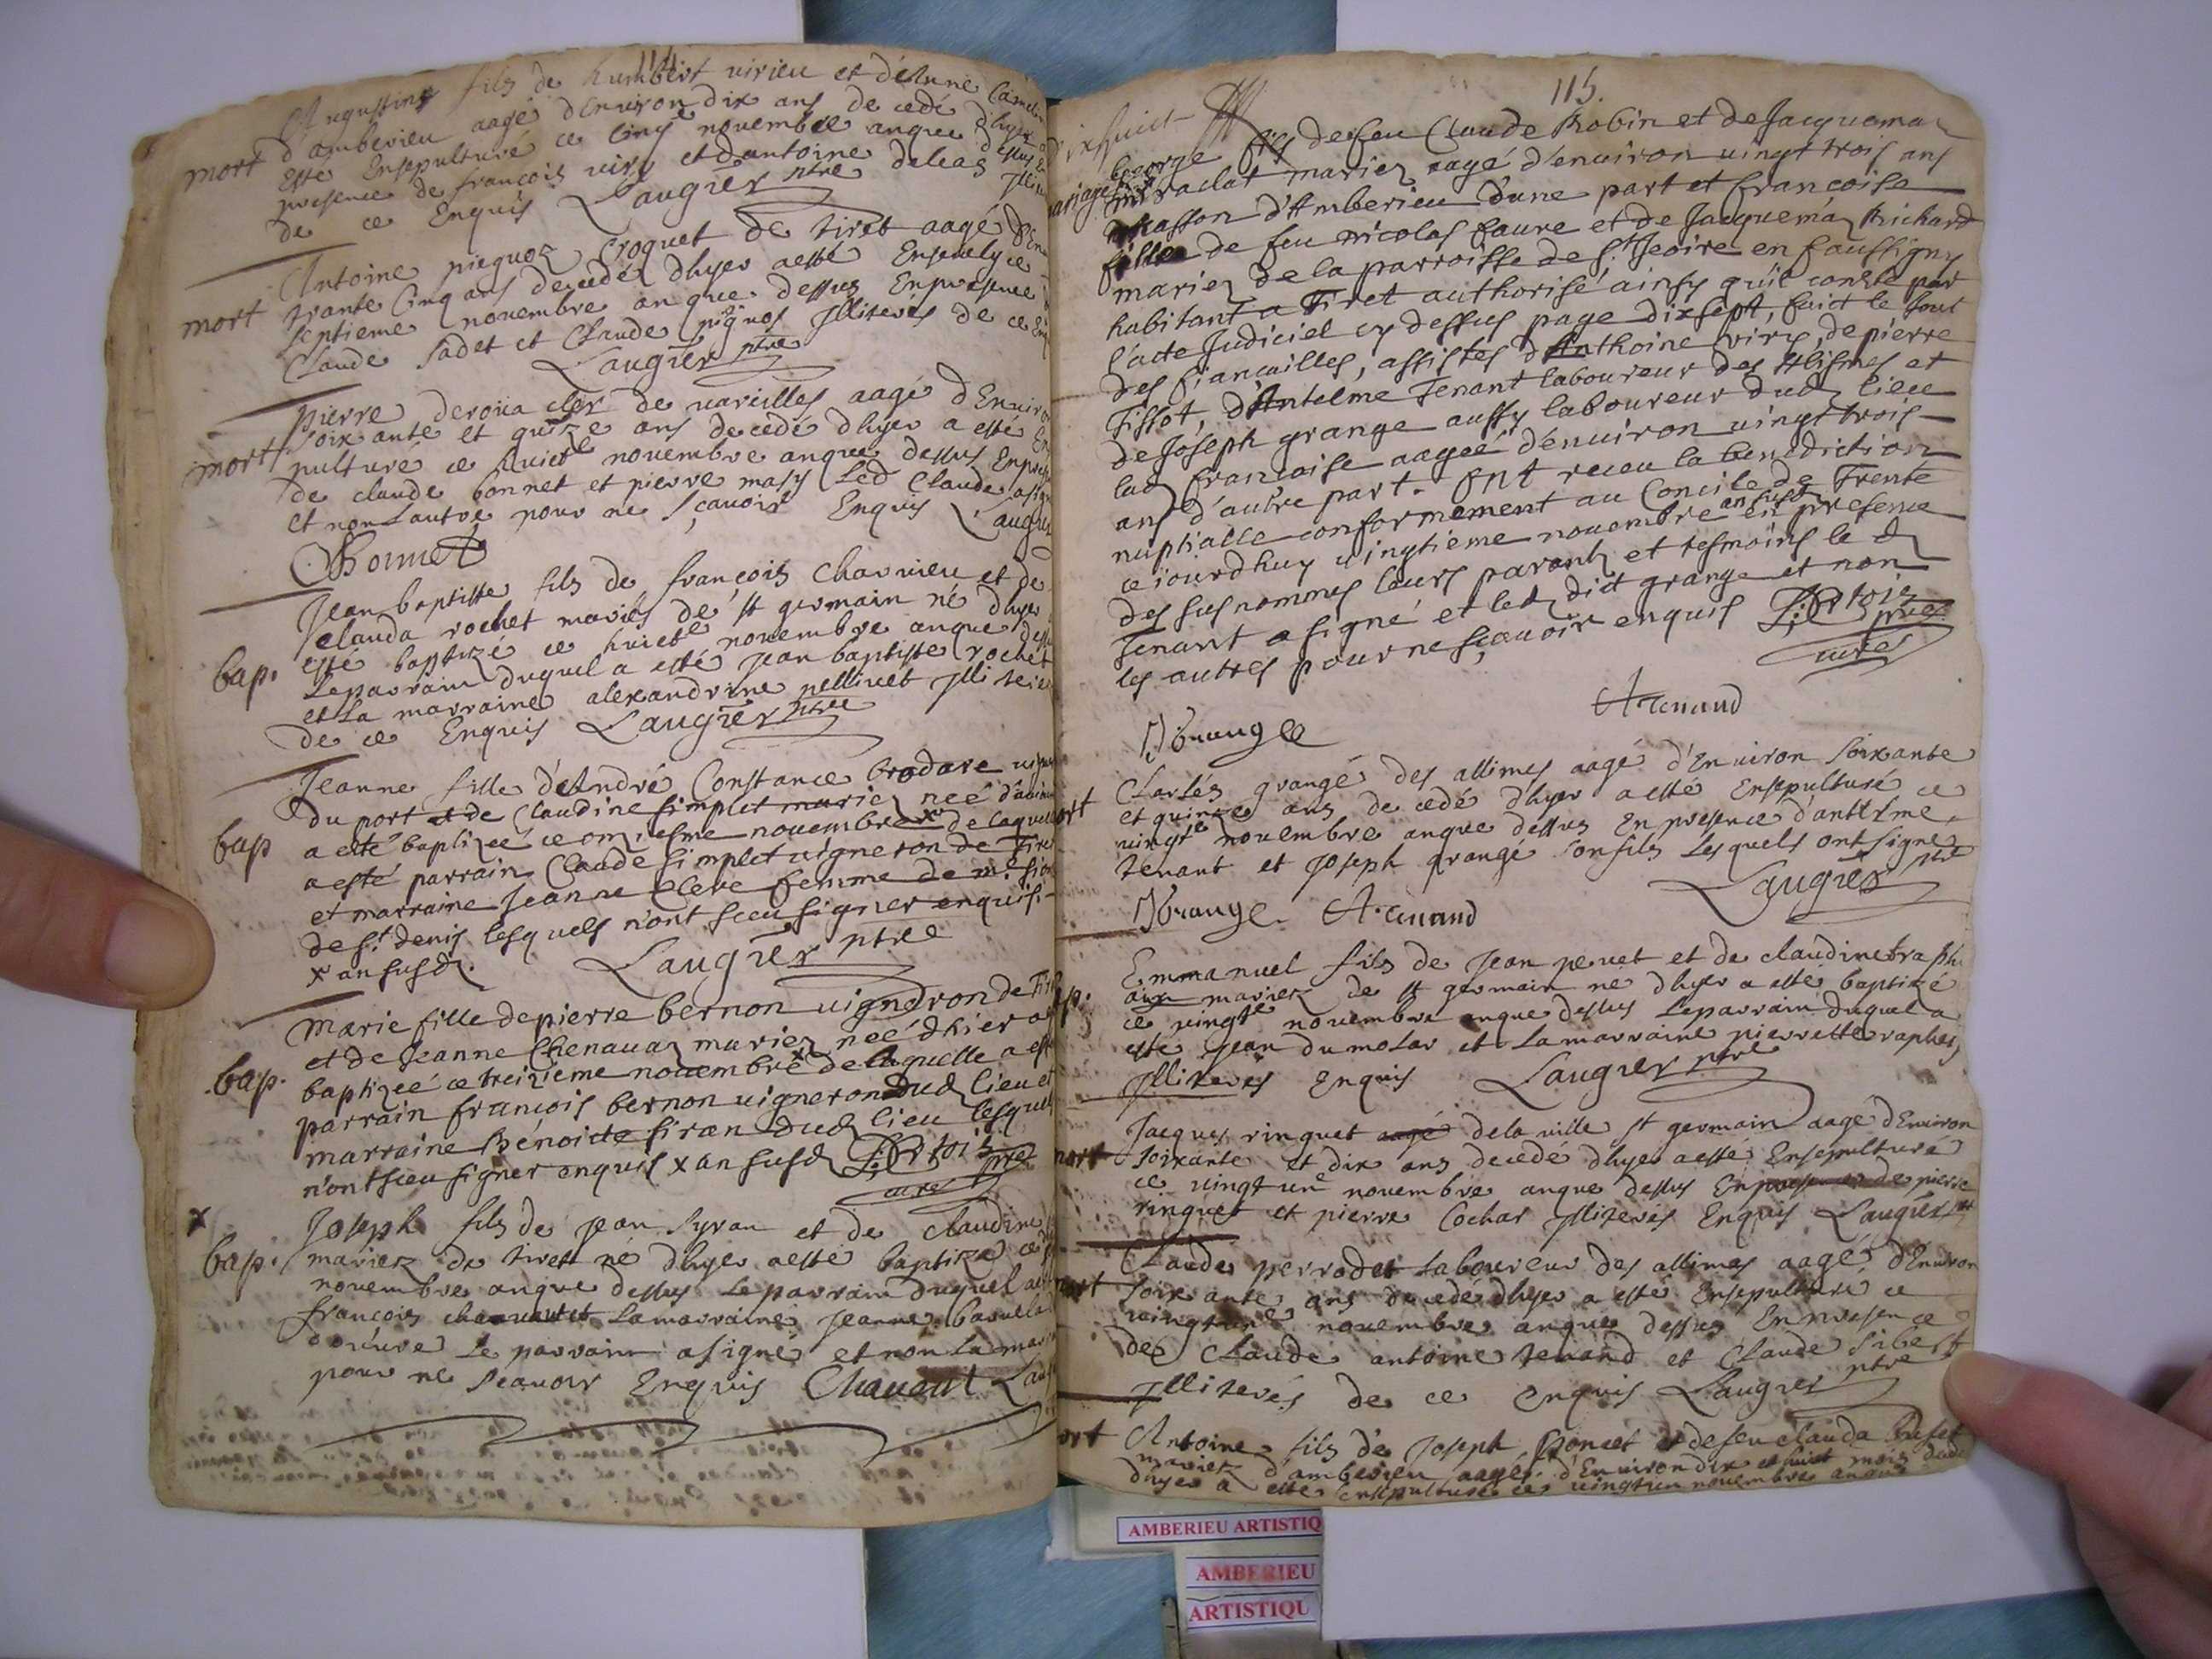 114
Augustin fils de humbert virieu et d'Anne
mort d'amberieu aagé d'Environ dix ans decedé dhyer a
esté Ensepulturé ce cinq novembre anque dessus En
presence de françois viry et dantoine deleas Illi
de ce Enquis Laugier ptre
Antoine piequoz Croquet de tiret aagé d'En
mort trante Cinq ans decedé dhyer a esté Ensevely ce
septieme novembre an que dessus En presence de
Claude sadet et Claude piquoz Illiterés de ce En
Laugier ptre
pierre de vareilles aagé d'Environ
soixante et quize ans decedé dhyer a esté En
mort pulturé ce huicte novembre anque dessus En pres
de claude bonnet et pierre masy Led Claude a sign
et non Lautre pour ne sçavoir Enquis Laugier
CBonnet
Jean baptiste fils de françois charvieu et de
clauda rochet mariés de st germain né dhyer
bap. esté baptizé ce huicte novembre anque dessu
Le parrain duquel a esté Jean baptiste rochet
et La marraine alexandrine pellivet Illiteres
de ce Enquis Laugier ptre
Jeanne fille d'André Constance brodare
du port et de Claudine simplet mariez neé d'au
bap a esté baptizeé ce onziesme novembre x de laquell
a esté parrain Claude simplet vigneron de Tire
et marraine Jeanne Clere femme de
de st denis lesquels n'ont sceu signer enquis
x an susd. Laugier ptre
Marie fille de pierre bernon vigneron de Tir
et de Jeanne Chenavaz mariez neé d'hier a
.bap. baptizeé ce treizieme novembre x de laquelle a est
parrain françois bernon vigneron dud lieu et
marraine Bénoiste siran dud lieu lesquel
n'ont sceu signer enquis x an susd
prer
curé
x
Joseph fils de Jean Syran et de Claudine
bap. mariez de tiret né dhyer a esté baptizé ce
novembre anque dessus Le parrain duquel a es
françois chavent et La marraine Jeanne
Le parrain a signé et non la mar
pour ne scavoir Enquis Chavent Lau
115.
dixhuict
George fils de feu Claude Robin et de Jacquema
mariage mariez aagé d'environ vingt trois ans
masson d'Amberieu d'une part et francoise
fille de feu Nicolas faure et de Jacquema Richard
mariez de la parroisse de st Jeoire en faussigny
habitant a Tiret authorisé ainsy qu'il conste par
l'acte Judiciel cy dessus page dixsept, faict le tout
des fiançailles, assistes d'Anthoine viry, de pierre
Tissot, d'Antelme Tenant laboureur des Allismes et
de Joseph grange aussy laboureur dud lieu
lad francoise aageé d'environ vingt trois
ans d'autre part. Ont receu la benediction
nuptialle conformement au Concile de Trente
ce iourdhuy vingtieme novembre an susd en presence
des susnommes leurs parants et tesmoins le d
Tenant a signé et led dict grange et non
les autres pour ne sçavoir enquis
prer
curé
ATenand
JGrange
Charles grangé des allimes aagé d'Environ soixante
ort et quinze ans decedé dhyer a esté Ensepulturé ce
vingte novembre anque dessus En presence d'antelme
tenant et Joseph grangé son fils Lesquels ont signe
Laugier ptre
JGrange. ATenand
Emmanuel fils de Jean pevet et de claudine traph
p. mariez de st germain né dhyer a esté baptizé
ce vingte novembre anque dessus Le parrain duquel a
esté Jean dumolar et La marraine pierrette raphes
Illiteres Enquis Laugier ptre
Jacques ringuet aagé de la ville st germain aagé d'Environ
mort soixante et dix ans decedé dhyer a esté Ensepulturé
ce vingt une novembre anque dessus En presence de pierre
ringuet et pierre Cochar Illiterés Enquis Laugier ptr
Claude perrodet Laboureur des allimes aagé d'Environ
ort soixante ans decedé dhyer a esté Ensepulturé ce
vingtune novembre anque dessus En presence
de Claude antoine tenand et Claude sibert
Illiterés de ce enquis Laugier ptre
ort Antoine fils de Joseph Poncet et de feu Clauda
mariez d'amberieu aagé d'Environ dix et huict mois decedé
dhyer a esté Ensepulturé ce vingtun novembre anque
AMBERIEU ARTISTIQ
AMBERIEU
ARTISTIQU